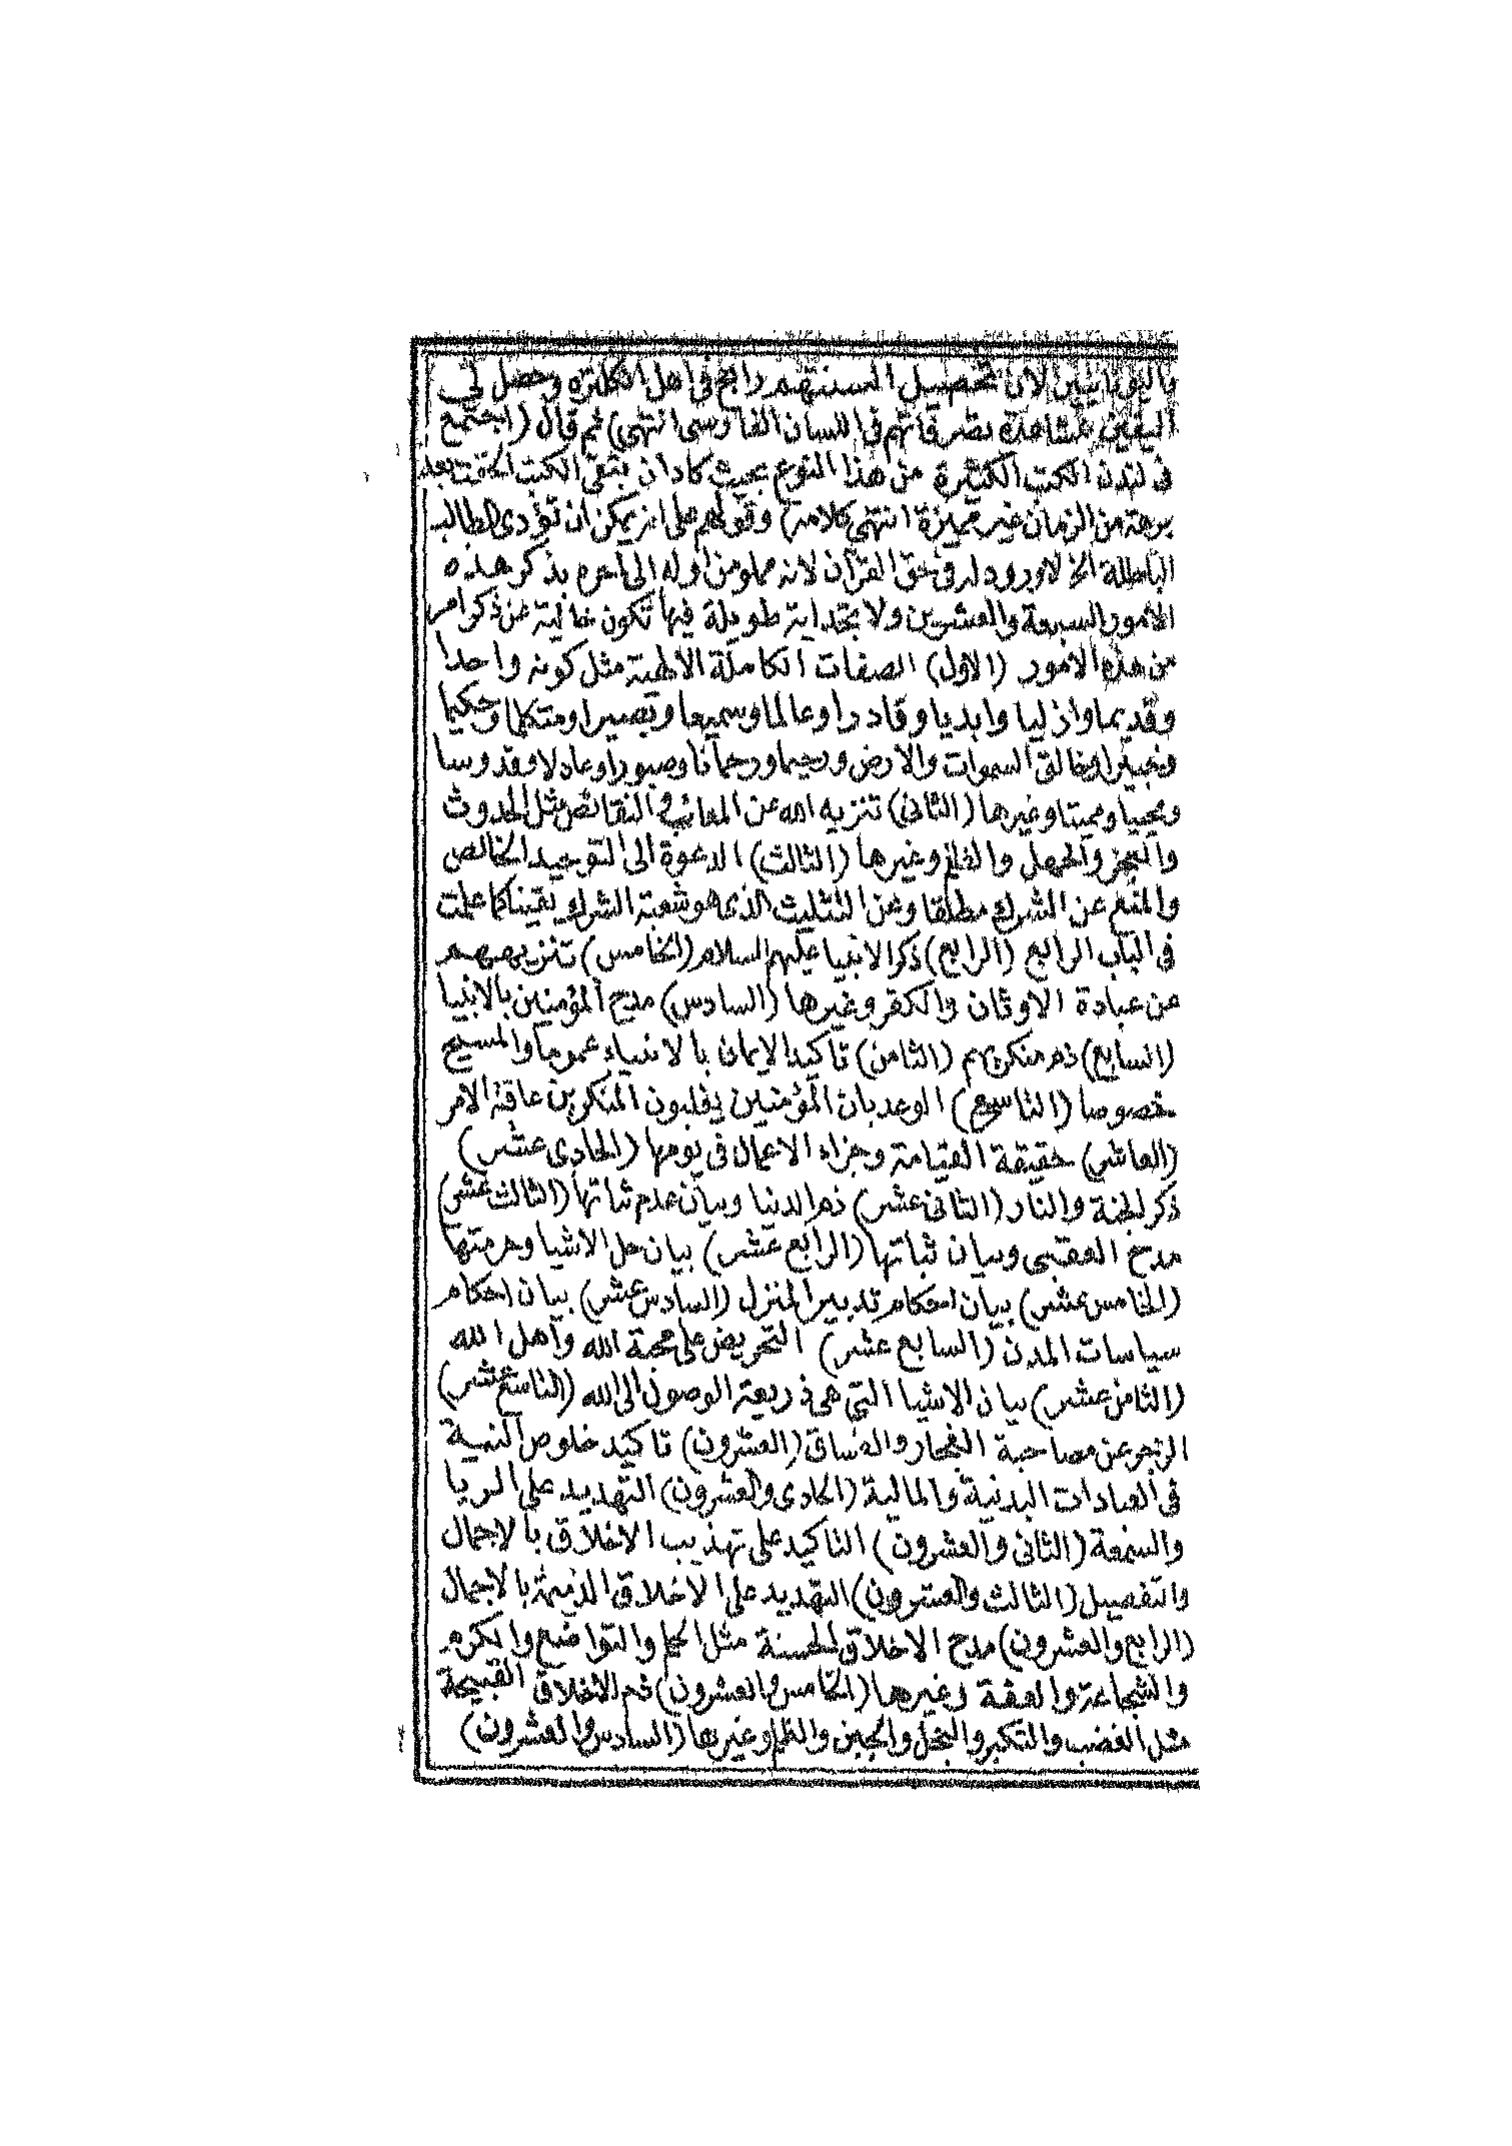 واليونانيين لان تحصيل السنتهم رايج فى اهل انكلتره وحصل لى
اليقين بمشاهدة تصرفاتهم فى اللسان الفارسى انتهى) ثم قال (اجتمع
فى لندن الكتب الكثيرة من هذا النوع بحيث كاد ان يبقى الكتب الحقة بعد
برهة من الزمان غير مميزة انتهى كلامه) وقولهم على انه يمكن ان تؤدى المطالب
الباطلة الخ لا ورود له فى حق القرآن لانه مملو من اوله الى اخره بذكر هذه
الامور السبعة والعشرين ولا تجد اية طويلة فيها تكون خالية عن ذكر امر
من هذه الامور (الاول) الصفات الكاملة الالهية مثل كونه واحدا
وقديما وازليا وابديا وقادرا وعالما وسميعا وبصيرا ومتكلما وحكيما
وخبيرا وخالق السموات والارض ورحيما ورحمانا وصبورا وعادلا وقدوسا
ومحييا ومميتا وغيرها (الثانى) تنزيه الله عن المعائب والنقائص مثل الحدوث
والعجز والجهل والظلم وغيرها (الثالث) الدعوة الى التوحيد الخالص
والمنع عن الشرك مطلقا وعن التثليث الذى هو شعبة الشرك يقينا كما علمت
فى الباب الرابع (الرابع) ذكر الانبيا عليهم السلام (الخامس) تنزيههم
عن عبادة الاوثان والكفر وغيرها (السادس) مدح المؤمنين بالانبيا
(السابع) ذم منكريهم (الثامن) تاكيد الايمان بالانبياء عموما والمسيح
خصوصا (التاسع) الوعد بان المؤمنين يغلبون المنكرين عاقبة الامر
(العاشر) حقيقة القيامة وجزاء الاعمال فى يومها (الحادى عشر)
ذكر الجنة والنار (الثانى عشر) ذم الدنيا وبيان عدم ثباتها (الثالث عشر)
مدح العقبى وبيان ثباتها (الرابع عشر) بيان حل الاشيا وحرمتها
(الخامس عشر) بيان احكام تدبير المنزل (السادس عشر) بيان احكام
سياسات المدن (السابع عشر) التحريض على محبة الله واهل الله
(الثامن عشر) بيان الاشيا التى هى ذريعة الوصول الى الله (التاسع عشر)
الزجر عن مصاحبة الفجار والفساق (العشرون) تاكيد خلوص النية
فى العبادات البدنية والمالية (الحادى والعشرون) التهديد على الريا
والسمعة (الثانى والعشرون) التاكيد على تهذيب الاخلاق بالاجمال
والتفصيل (الثالث والعشرون) التهديد على الاخلاق الذميمة بالاجمال
(الرابع والعشرون) مدح الاخلاق الحسنة مثل الحلم والتواضع والكرم
والشجاعة والعفة وغيرها (الخامس والعشرون) ذم الاخلاق القبيحة
مثل الغضب والتكبر والبخل والجبن والظلم وغيرها (السادس والعشرون)